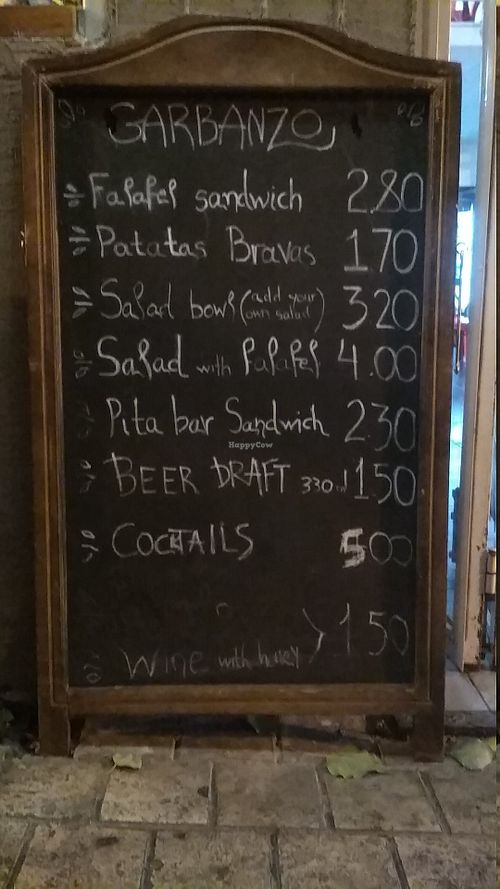 GARBANZO
Falafel sandwich 2.80
Patatas Bravas 1.70
Salad bowl (add your own salad) 3.20
Salad with falafel 4.00
Pita bar Sandwich 2.30
HappyCow
BEER DRAFT 330ml 1.50
COCKTAILS 5.00
Wine with honey > 1.50